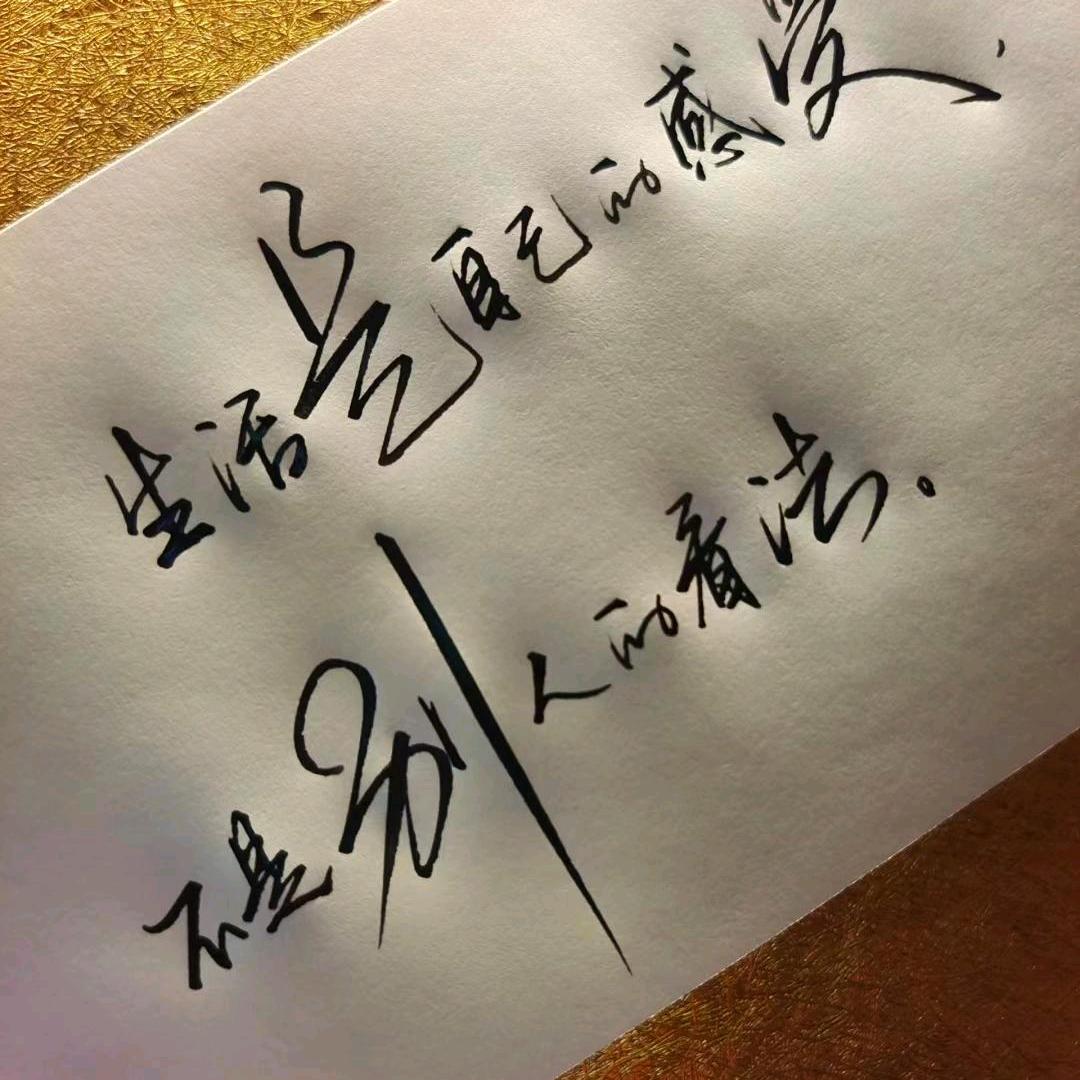 生活是自己的感受,
不是别人的看法。